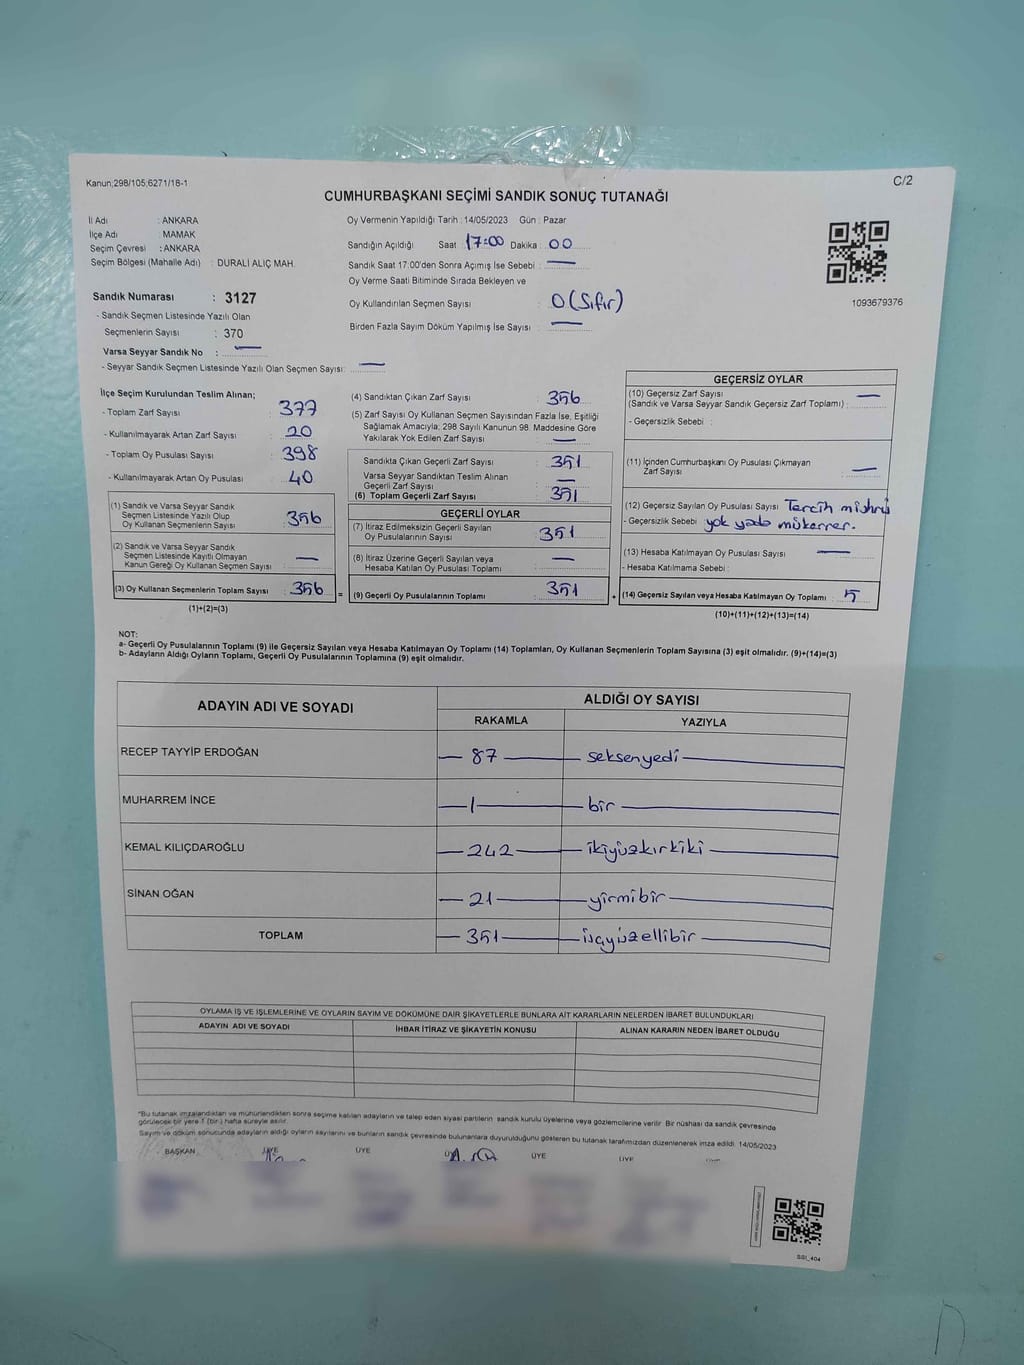 Kanun;298/105;6271/18-1
C/2
CUMHURBAŞKANI SEÇİMİ SANDIK SONUÇ TUTANAĞI
İl Adı : ANKARA
İlçe Adı : MAMAK
Seçim Çevresi : ANKARA
Seçim Bölgesi (Mahalle Adı) : DURALİ ALIÇ MAH.
Sandık Numarası : 3127
- Sandık Seçmen Listesinde Yazılı Olan
Seçmenlerin Sayısı : 370
Varsa Seyyar Sandık No : —
- Seyyar Sandık Seçmen Listesinde Yazılı Olan Seçmen Sayısı: —
Oy Vermenin Yapıldığı Tarih : 14/05/2023 Gün : Pazar
Sandığın Açıldığı Saat 17:00 Dakika : 00
Sandık Saat 17:00'den Sonra Açımış İse Sebebi : —
Oy Verme Saati Bitiminde Sırada Bekleyen ve
Oy Kullandırılan Seçmen Sayısı : 0 (Sıfır)
Birden Fazla Sayım Döküm Yapılmış İse Sayısı : —
1093679376
İlçe Seçim Kurulundan Teslim Alınan;
- Toplam Zarf Sayısı : 377
- Kullanılmayarak Artan Zarf Sayısı : 20
- Toplam Oy Pusulası Sayısı : 398
- Kullanılmayarak Artan Oy Pusulası : 40
(1) Sandık ve Varsa Seyyar Sandık
Seçmen Listesinde Yazılı Olup
Oy Kullanan Seçmenlerin Sayısı : 356
(2) Sandık ve Varsa Seyyar Sandık
Seçmen Listesinde Kayıtlı Olmayan
Kanun Gereği Oy Kullanan Seçmen Sayısı : —
(3) Oy Kullanan Seçmenlerin Toplam Sayısı : 356 =
(1)+(2)=(3)
(4) Sandıktan Çıkan Zarf Sayısı : 356
(5) Zarf Sayısı Oy Kullanan Seçmen Sayısından Fazla İse, Eşitliği
Sağlamak Amacıyla; 298 Sayılı Kanunun 98. Maddesine Göre
Yakılarak Yok Edilen Zarf Sayısı : —
Sandıkta Çıkan Geçerli Zarf Sayısı : 351
Varsa Seyyar Sandıktan Teslim Alınan
Geçerli Zarf Sayısı : —
(6) Toplam Geçerli Zarf Sayısı : 351
GEÇERLİ OYLAR
(7) İtiraz Edilmeksizin Geçerli Sayılan
Oy Pusulalarının Sayısı : 351
(8) İtiraz Üzerine Geçerli Sayılan veya
Hesaba Katılan Oy Pusulası Toplamı : —
(9) Geçerli Oy Pusulalarının Toplamı : 351 +
GEÇERSİZ OYLAR
(10) Geçersiz Zarf Sayısı
(Sandık ve Varsa Seyyar Sandık Geçersiz Zarf Toplamı) : —
- Geçersizlik Sebebi :
(11) İçinden Cumhurbaşkanı Oy Pusulası Çıkmayan
Zarf Sayısı : —
(12) Geçersiz Sayılan Oy Pusulası Sayısı : Tercih mührü
- Geçersizlik Sebebi : yok yada mükerrer.
(13) Hesaba Katılmayan Oy Pusulası Sayısı : —
- Hesaba Katılmama Sebebi :
(14) Geçersiz Sayılan veya Hesaba Katılmayan Oy Toplamı : 5
(10)+(11)+(12)+(13)=(14)
NOT:
a- Geçerli Oy Pusulalarının Toplamı (9) ile Geçersiz Sayılan veya Hesaba Katılmayan Oy Toplamı (14) Toplamları, Oy Kullanan Seçmenlerin Toplam Sayısına (3) eşit olmalıdır. (9)+(14)=(3)
b- Adayların Aldığı Oyların Toplamı, Geçerli Oy Pusulalarının Toplamına (9) eşit olmalıdır.
ADAYIN ADI VE SOYADI
ALDIĞI OY SAYISI
RAKAMLA YAZIYLA
RECEP TAYYİP ERDOĞAN — 87 — seksenyedi —
MUHARREM İNCE — 1 — bir —
KEMAL KILIÇDAROĞLU — 242 — ikiyüzkırkiki —
SİNAN OĞAN — 21 — yirmibir —
TOPLAM — 351 — üçyüzellibir —
OYLAMA İŞ VE İŞLEMLERİNE VE OYLARIN SAYIM VE DÖKÜMÜNE DAİR ŞİKAYETLERLE BUNLARA AİT KARARLARIN NELERDEN İBARET BULUNDUKLARI
ADAYIN ADI VE SOYADI İHBAR İTİRAZ VE ŞİKAYETİN KONUSU ALINAN KARARIN NEDEN İBARET OLDUĞU
*Bu tutanak imzalandıktan ve mühürlendikten sonra seçime katılan adayların ve talep eden siyasi partilerin sandık kurulu üyelerine veya gözlemcilerine verilir. Bir nüshası da sandık çevresinde
görülecek bir yere 1 (bir) hafta süreyle asılır.
Sayım ve döküm sonucunda adayların aldığı oyların sayılarını ve bunların sandık çevresinde bulunanlara duyurulduğunu gösteren bu tutanak tarafımızdan düzenlenerek imza edildi. 14/05/2023
BAŞKAN ÜYE ÜYE ÜYE ÜYE ÜYE
SSI_404